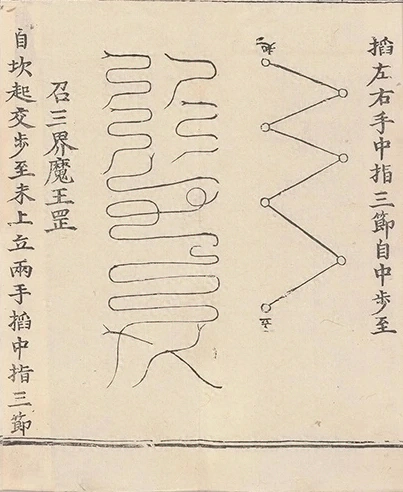 掐左右手中指三節自中步至
起
立
召三界魔王罡
自坎起交步至未上立兩手掐中指三節